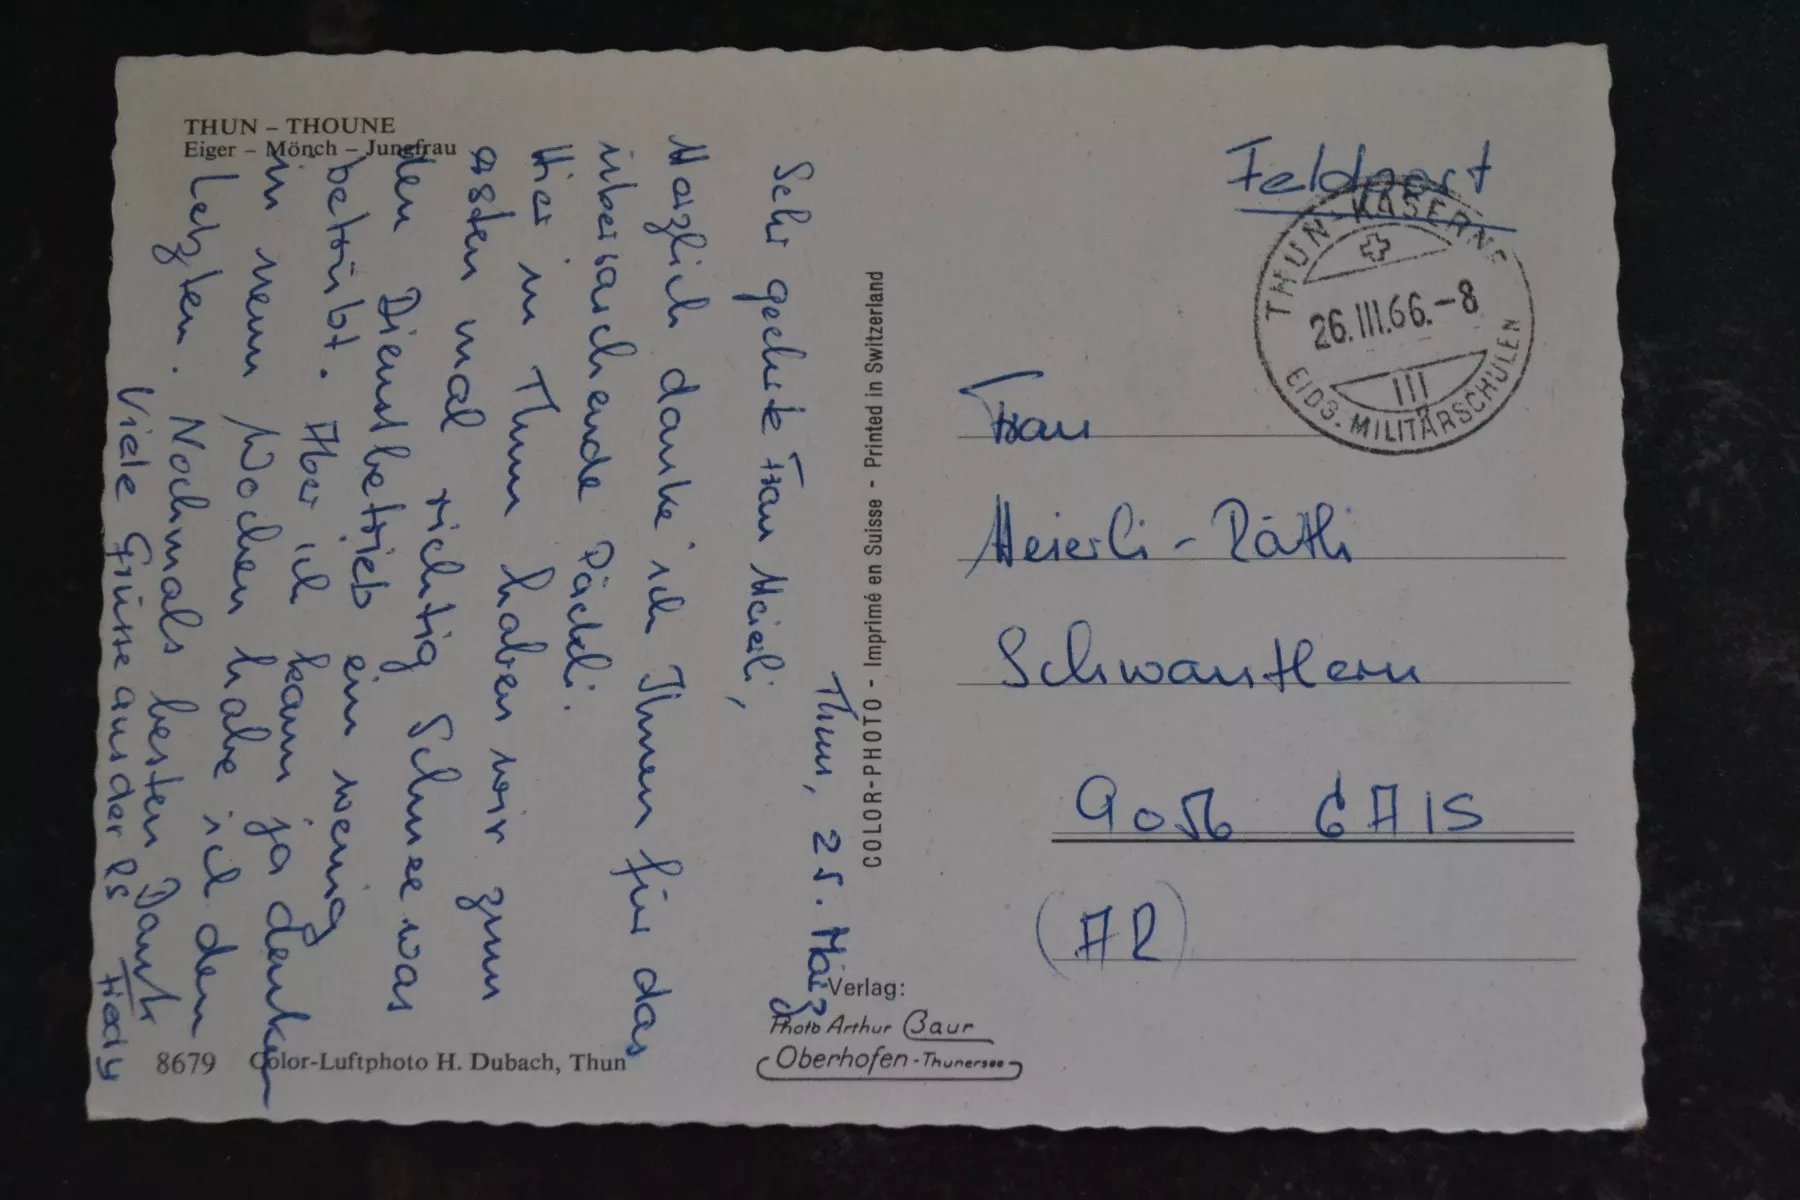 THUN – THOUNE
Eiger – Mönch – Jungfrau
Thun, 25. März
Sehr geehrte Frau Meierli,
Herzlich danke ich Ihnen für das
überraschende Päckli.
Hier in Thun haben wir zum
ersten mal richtig Schnee was
den Dienstbetrieb ein wenig
betrübt. Aber ich kann ja denken
in neun Wochen habe ich den
Letzten. Nochmals besten Dank
Viele Grüsse aus der RS Fredy
8679 Color-Luftphoto H. Dubach, Thun
COLOR-PHOTO - Imprimé en Suisse - Printed in Switzerland
Verlag:
Photo Arthur Baur
Oberhofen-Thunersee
Feldpost
THUN-KASERNE
26.III.66.-8
III
EIDG. MILITÄRSCHULEN
Frau
Meierli-Räthi
Schwantlern
9056 GAIS
(AR)